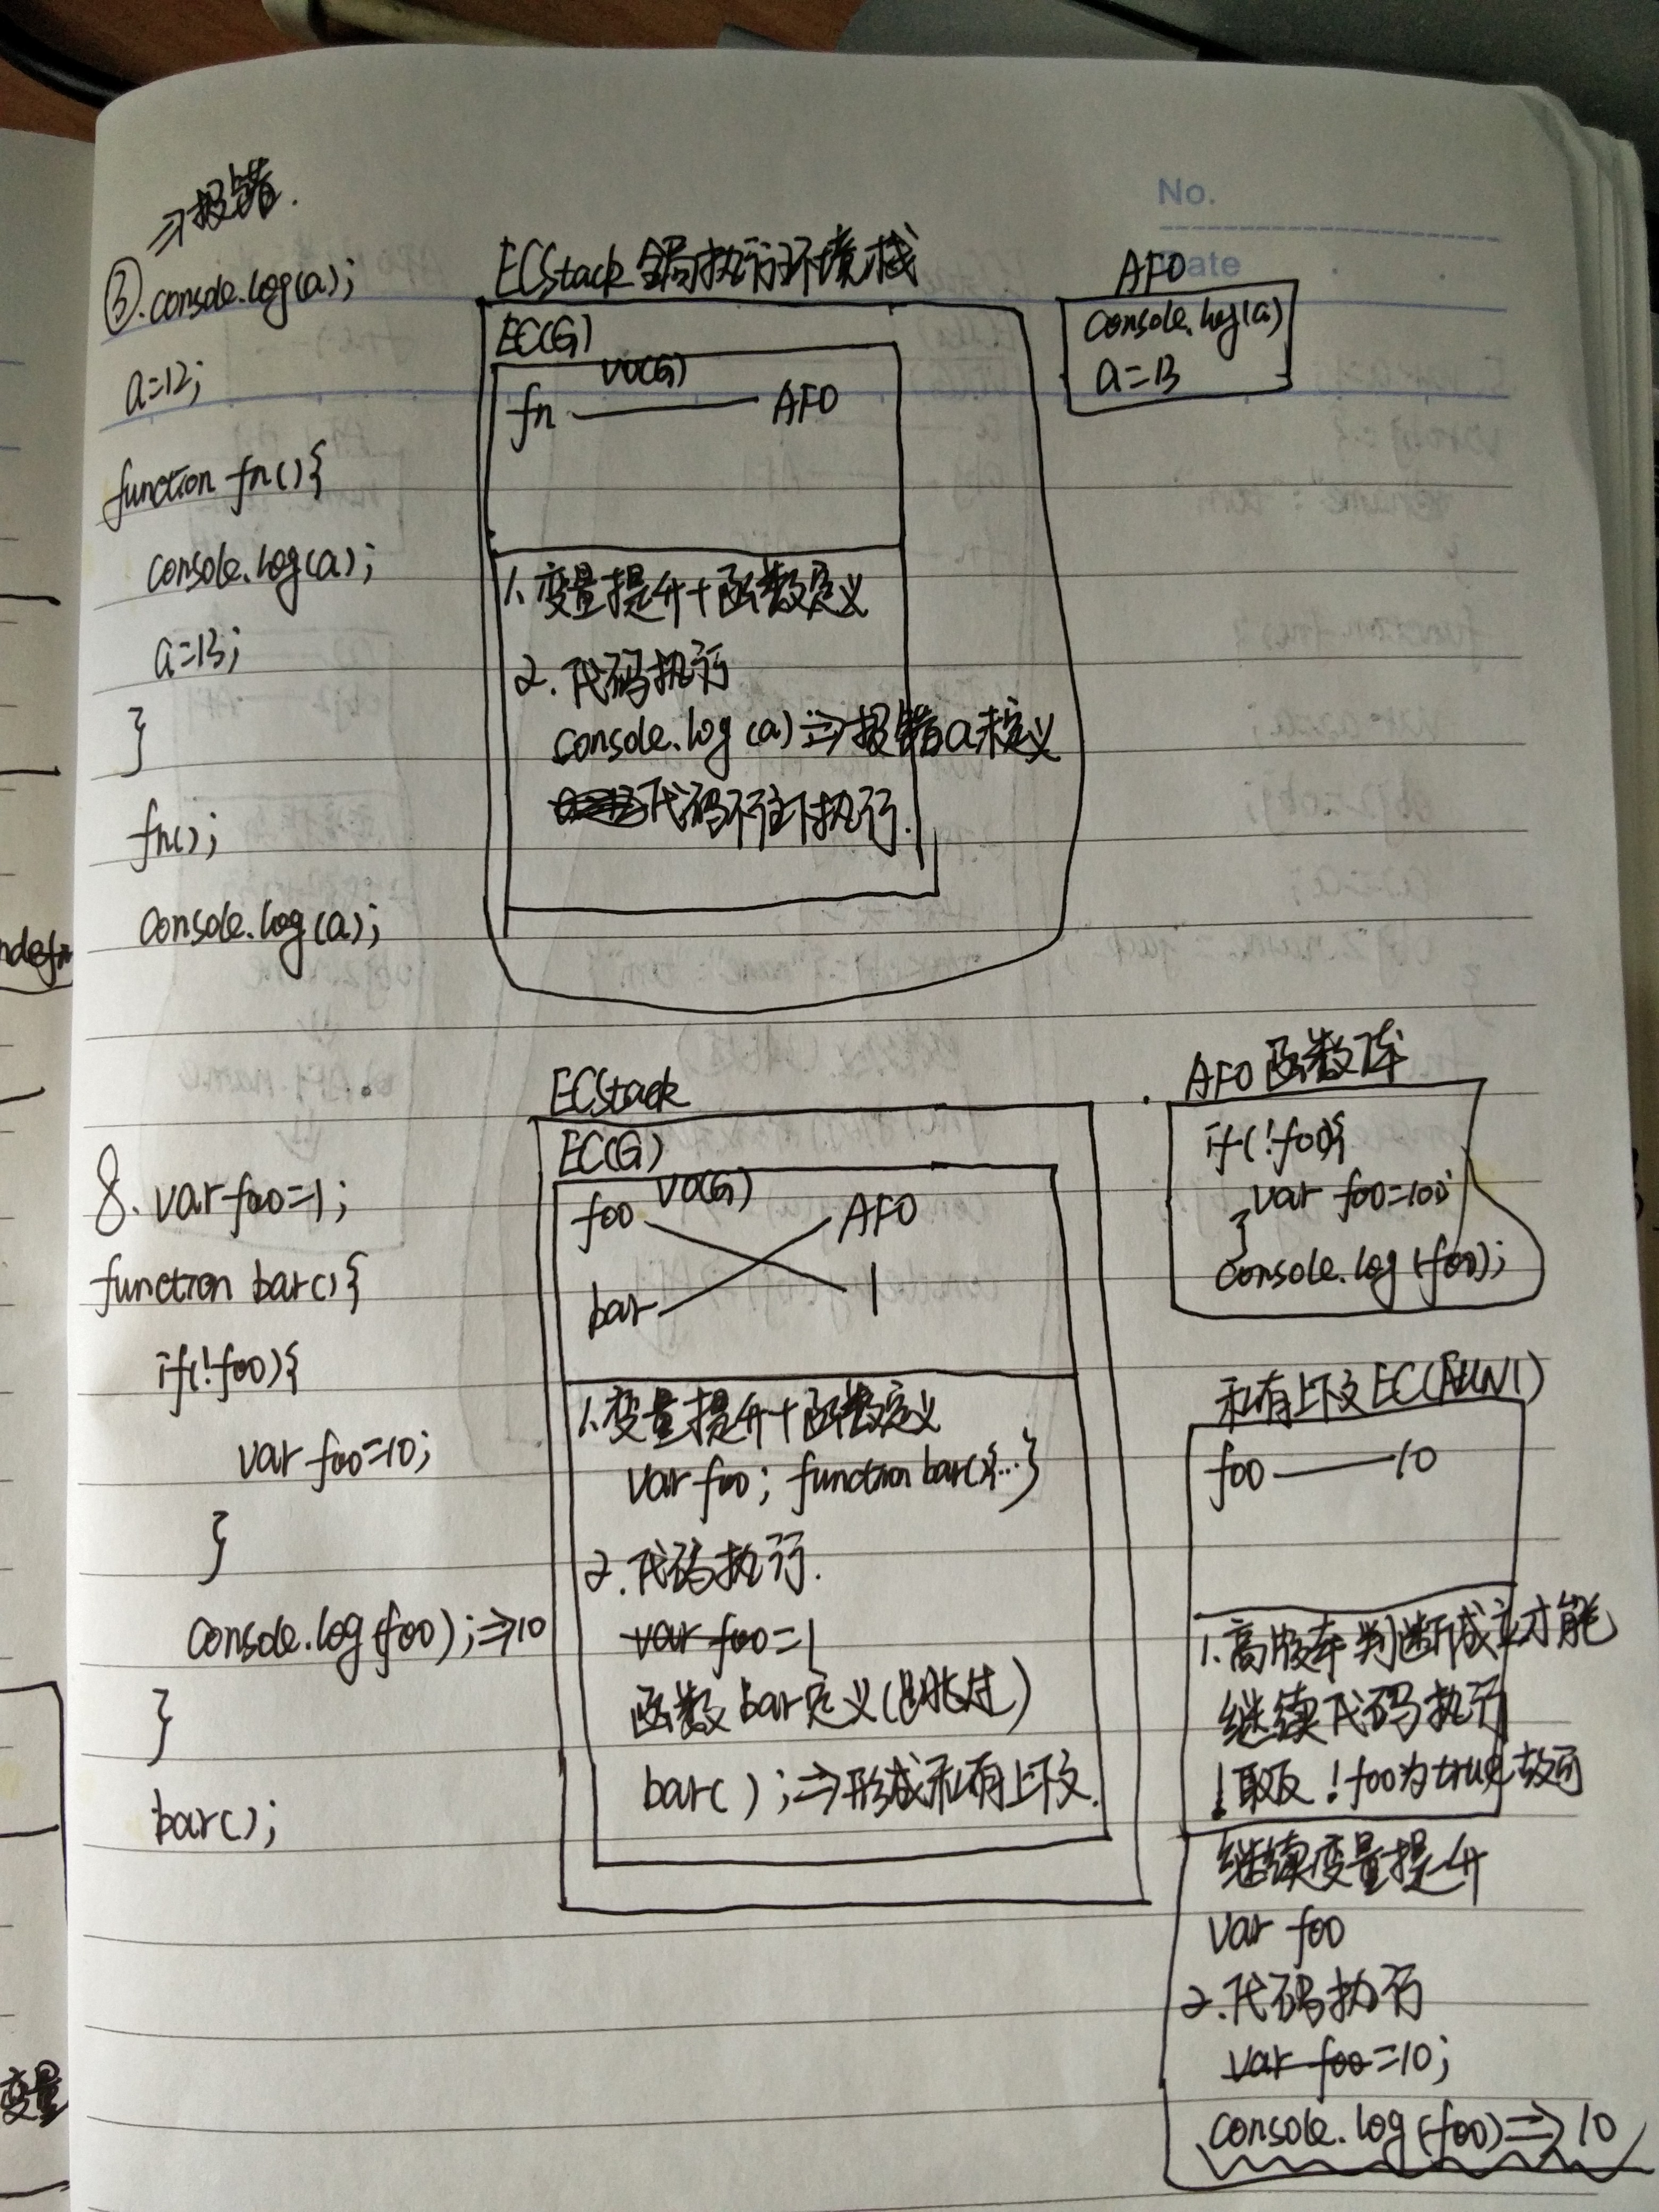 ⇒报错.
③.console.log(a);
a=12;
function fn(){
console.log(a);
a=13;
}
fn();
console.log(a);
ECStack 全局执行环境栈
EC(G)
VO(G)
fn —— AF0
1.变量提升+函数定义
2.代码执行
console.log(a)⇒报错a未定义
代码不往下执行.
No.
Date
AF0
console.log(a)
a=13
8. var foo=1;
function bar(){
if(!foo){
var foo=10;
}
console.log(foo);⇒10
}
bar();
ECStack
EC(G)
VO(G)
foo AF0
bar 1
1.变量提升+函数定义
var foo; function bar(){...}
2.代码执行.
var foo=1
函数bar定义(跳过)
bar();⇒形成私有上下文.
AF0 函数库
if(!foo){
var foo=10;
}
console.log(foo);
私有上下文EC(FUN1)
foo —— 10
1.高版本判断成立才能
继续代码执行
!取反 !foo为true故可
继续变量提升
var foo
2.代码执行
var foo=10;
console.log(foo)⇒10
ndefin
变量